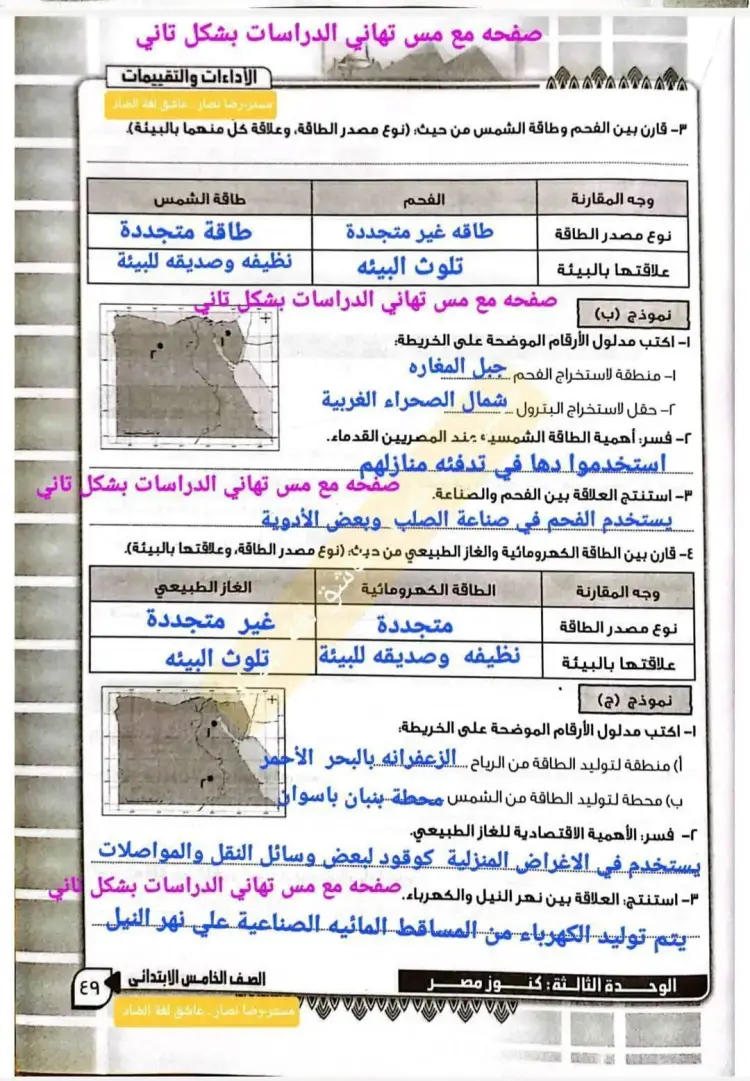 صفحه مع مس تهاني الدراسات بشكل تاني
الأداءات والتقييمات
مستر-رضا نصار . عاشق لغة الضاد
٣- قارن بين الفحم وطاقة الشمس من حيث: (نوع مصدر الطاقة، وعلاقة كل منهما بالبيئة).
وجه المقارنة الفحم طاقة الشمس
نوع مصدر الطاقة طاقه غير متجددة طاقة متجددة
علاقتها بالبيئة تلوث البيئه نظيفه وصديقه للبيئة
صفحه مع مس تهاني الدراسات بشكل تاني
نموذج (ب)
١- اكتب مدلول الأرقام الموضحة على الخريطة:
١
٢
١- منطقة لاستخراج الفحم جبل المغاره
٢- حقل لاستخراج البترول شمال الصحراء الغربية
٢- فسر: أهمية الطاقة الشمسية عند المصريين القدماء.
استخدموا دها في تدفئه منازلهم
صفحه مع مس تهاني الدراسات بشكل تاني
٣- استنتج العلاقة بين الفحم والصناعة.
يستخدم الفحم في صناعة الصلب وبعض الأدوية
٤- قارن بين الطاقة الكهرومائية والغاز الطبيعي من حيث: (نوع مصدر الطاقة، وعلاقتها بالبيئة).
وجه المقارنة الطاقة الكهرومائية الغاز الطبيعي
نوع مصدر الطاقة متجددة غير متجددة
علاقتها بالبيئة نظيفه وصديقه للبيئة تلوث البيئه
نموذج (ج)
١- اكتب مدلول الأرقام الموضحة على الخريطة:
١
٢
أ) منطقة لتوليد الطاقة من الرياح الزعفرانه بالبحر الأحمر
ب) محطة لتوليد الطاقة من الشمس محطة بنبان باسوان
٢- فسر: الأهمية الاقتصادية للغاز الطبيعي.
يستخدم في الاغراض المنزلية كوقود لبعض وسائل النقل والمواصلات
صفحه مع مس تهاني الدراسات بشكل تاني
٣- استنتج: العلاقة بين نهر النيل والكهرباء.
يتم توليد الكهرباء من المساقط المائيه الصناعية علي نهر النيل
الوحدة الثالثة: كنوز مصر
الصف الخامس الابتدائى
٤٩
مستر-رضا نصار . عاشق لغة الضاد